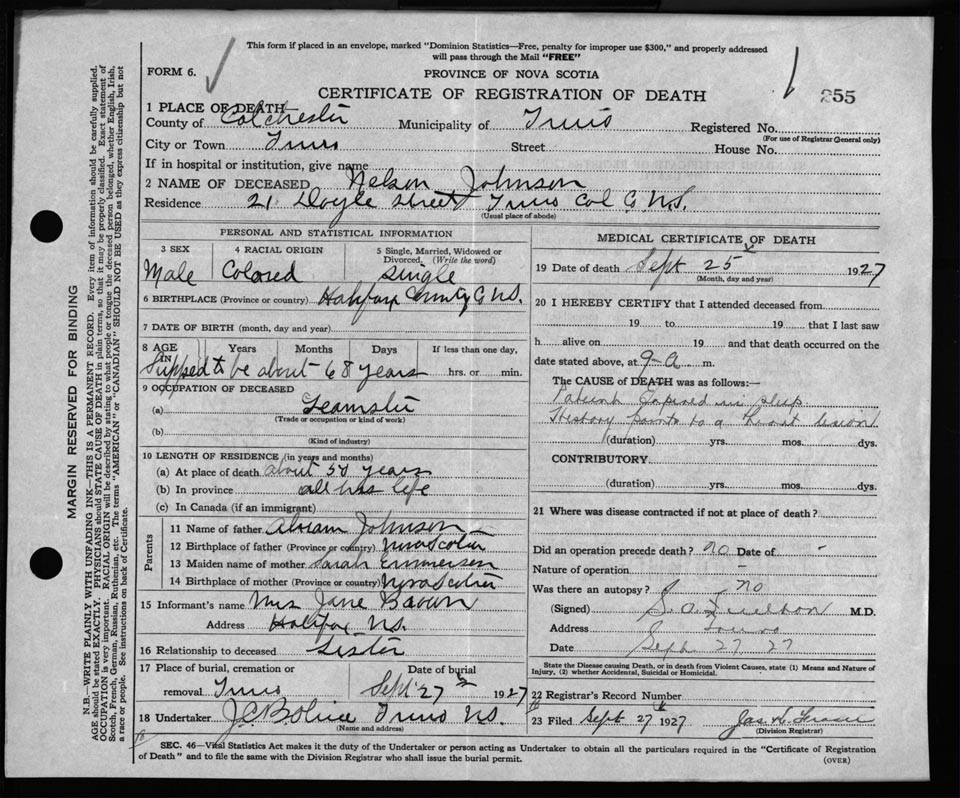 This form if placed in an envelope, marked "Dominion Statistics—Free, penalty for improper use $300," and properly addressed
will pass through the Mail "FREE"
FORM 6.
PROVINCE OF NOVA SCOTIA
CERTIFICATE OF REGISTRATION OF DEATH
255
1 PLACE OF DEATH
County of Colchester Municipality of Truro Registered No.
(For use of Registrar General only)
City or Town Truro Street House No.
If in hospital or institution, give name
2 NAME OF DECEASED Nelson Johnson
Residence 21 Doyle Street Truro Col Co N.S.
(Usual place of abode)
PERSONAL AND STATISTICAL INFORMATION
3 SEX 4 RACIAL ORIGIN 5 Single, Married, Widowed or Divorced, (Write the word)
Male Colored Single
6 BIRTHPLACE (Province or country) Halifax County N.S.
7 DATE OF BIRTH (month, day and year)
8 AGE Years Months Days If less than one day,
hrs. or min.
to be about 68 years
9 OCCUPATION OF DECEASED
(a) Teamster
(Trade or occupation or kind of work)
(b)
(Kind of industry)
10 LENGTH OF RESIDENCE (in years and months)
(a) At place of death about 50 years
(b) In province all his life
(c) In Canada (if an immigrant)
Parents
11 Name of father Abram Johnson
12 Birthplace of father (Province or country) Nova Scotia
13 Maiden name of mother Sarah Emmerson
14 Birthplace of mother (Province or country) Nova Scotia
15 Informant's name Mrs Jane Brown
Address Halifax N.S.
16 Relationship to deceased Sister
17 Place of burial, cremation or Date of burial
removal Truro Sept 27 1927
18 Undertaker Truro N.S.
(Name and address)
MEDICAL CERTIFICATE OF DEATH
19 Date of death Sept 25 1927
(Month, day and year)
20 I HEREBY CERTIFY that I attended deceased from
19 to 19 that I last saw
h alive on 19 and that death occurred on the
date stated above, at 9 a m.
The CAUSE of DEATH was as follows:
Patient Expired in sleep
History points to a lesion
(duration) yrs. mos. dys.
CONTRIBUTORY
(duration) yrs. mos. dys.
21 Where was disease contracted if not at place of death?
Did an operation precede death? no Date of -
Nature of operation
Was there an autopsy? no
(Signed) M.D.
Address Truro
Date Sept 27 27
State the Disease causing Death, or in death from Violent Causes, state (1) Means and Nature of
Injury, (2) whether Accidental, Suicidal or Homicidal.
22 Registrar's Record Number
23 Filed Sept 27 1927 Jas
(Division Registrar)
SEC. 46—Vital Statistics Act makes it the duty of the Undertaker or person acting as Undertaker to obtain all the particulars required in the "Certificate of Registration
of Death" and to file the same with the Division Registrar who shall issue the burial permit.
(OVER)
MARGIN RESERVED FOR BINDING
N.B.—WRITE PLAINLY WITH UNFADING INK—THIS IS A PERMANENT RECORD. Every item of information should be carefully supplied.
AGE should be stated EXACTLY. PHYSICIANS should STATE CAUSE OF DEATH in plain terms, so that it may be properly classified. Exact statement of
OCCUPATION is very important. RACIAL ORIGIN will be described by stating to what people or tongue the deceased person belonged, whether English, Irish,
Scotch, French, German, Russian, Ruthenian, etc. The terms "AMERICAN" or "CANADIAN" SHOULD NOT BE USED as they express citizenship but not
a race or people. See instructions on back of Certificate.